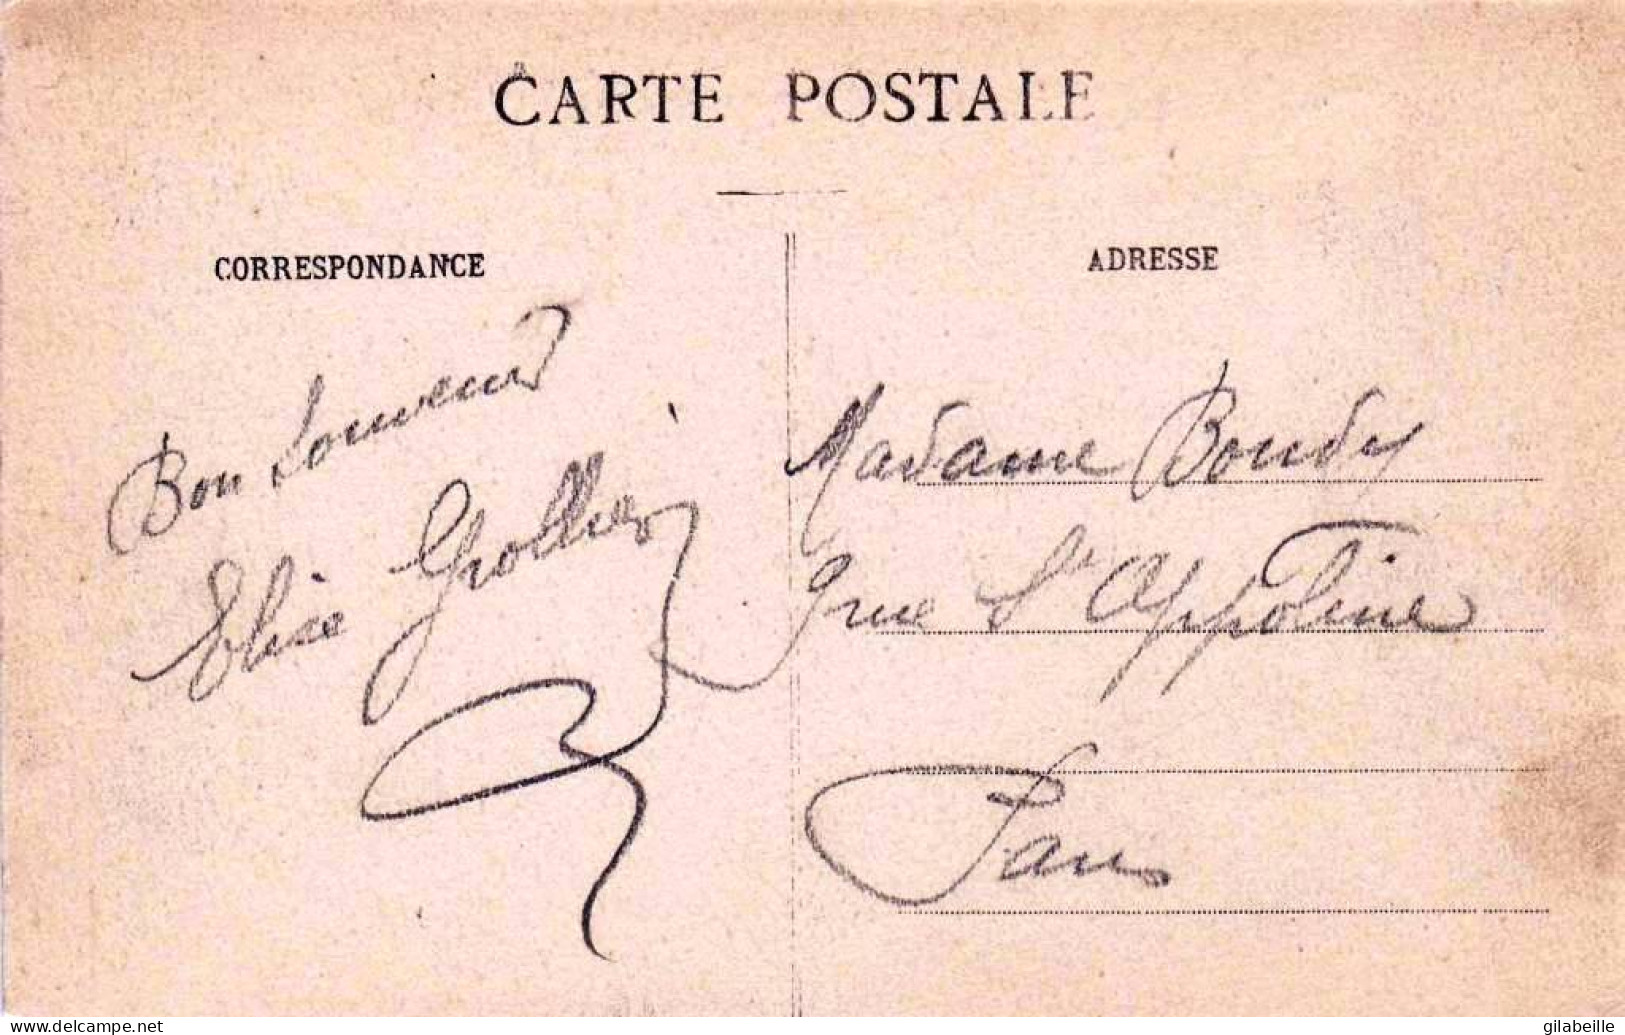 CARTE POSTALE
CORRESPONDANCE
Bon Souvenir
Elise Grollier
ADRESSE
Madame Boudy
9 rue St Appoline
Paris
www.delcampe.net
gilabeille